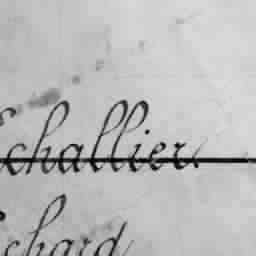 Echallier
Echard